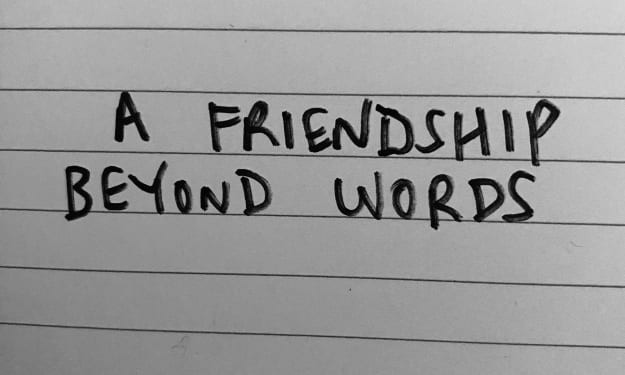 A FRIENDSHIP
BEYOND WORDS